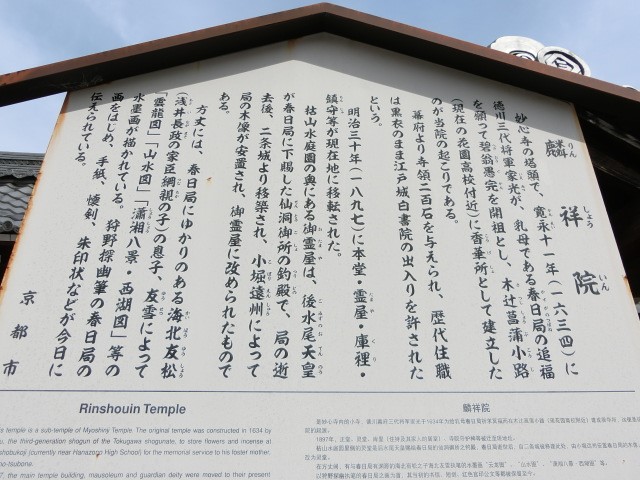 麟祥院
りんしょういん
妙心寺の塔頭で、寛永十一年(一六三四)に
徳川三代将軍家光が、乳母である春日局の追福
を願って碧翁愚完を開祖とし、木辻菖蒲小路
(現在の花園高校付近)に香華所として建立した
のが当院の起こりである。
幕府より寺領二百石を与えられ、歴代住職
は黒衣のまま江戸城白書院の出入りを許された
という。
明治三十年(一八九七)に本堂・霊屋・庫裡・
鎮守等が現在地に移転された。
枯山水庭園の奥にある御霊屋は、後水尾天皇
が春日局に下賜した仙洞御所の釣殿で、局の逝
去後、二条城より移築され、小堀遠州によって
局の木像が安置され、御霊屋に改められたもので
ある。
方丈には、春日局にゆかりのある海北友松
(浅井長政の家臣綱親の子)の息子、友雪によって
「雲龍図」「山水図」「瀟湘八景・西湖図」等の
水墨画が描かれている。狩野探幽筆の春日局の
画をはじめ、手紙、懐剣、朱印状などが今日に
伝えられている。
京都市
Rinshouin Temple
temple is a sub-temple of Myoshinji Temple. The original temple was constructed in 1634 by
the third-generation shogun of the Tokugawa shogunate, to store flowers and incense at
(currently near Hanazono High School) for the memorial service to his foster mother,
the main temple building, mausoleum and guardian deity were moved to their present
麟祥院